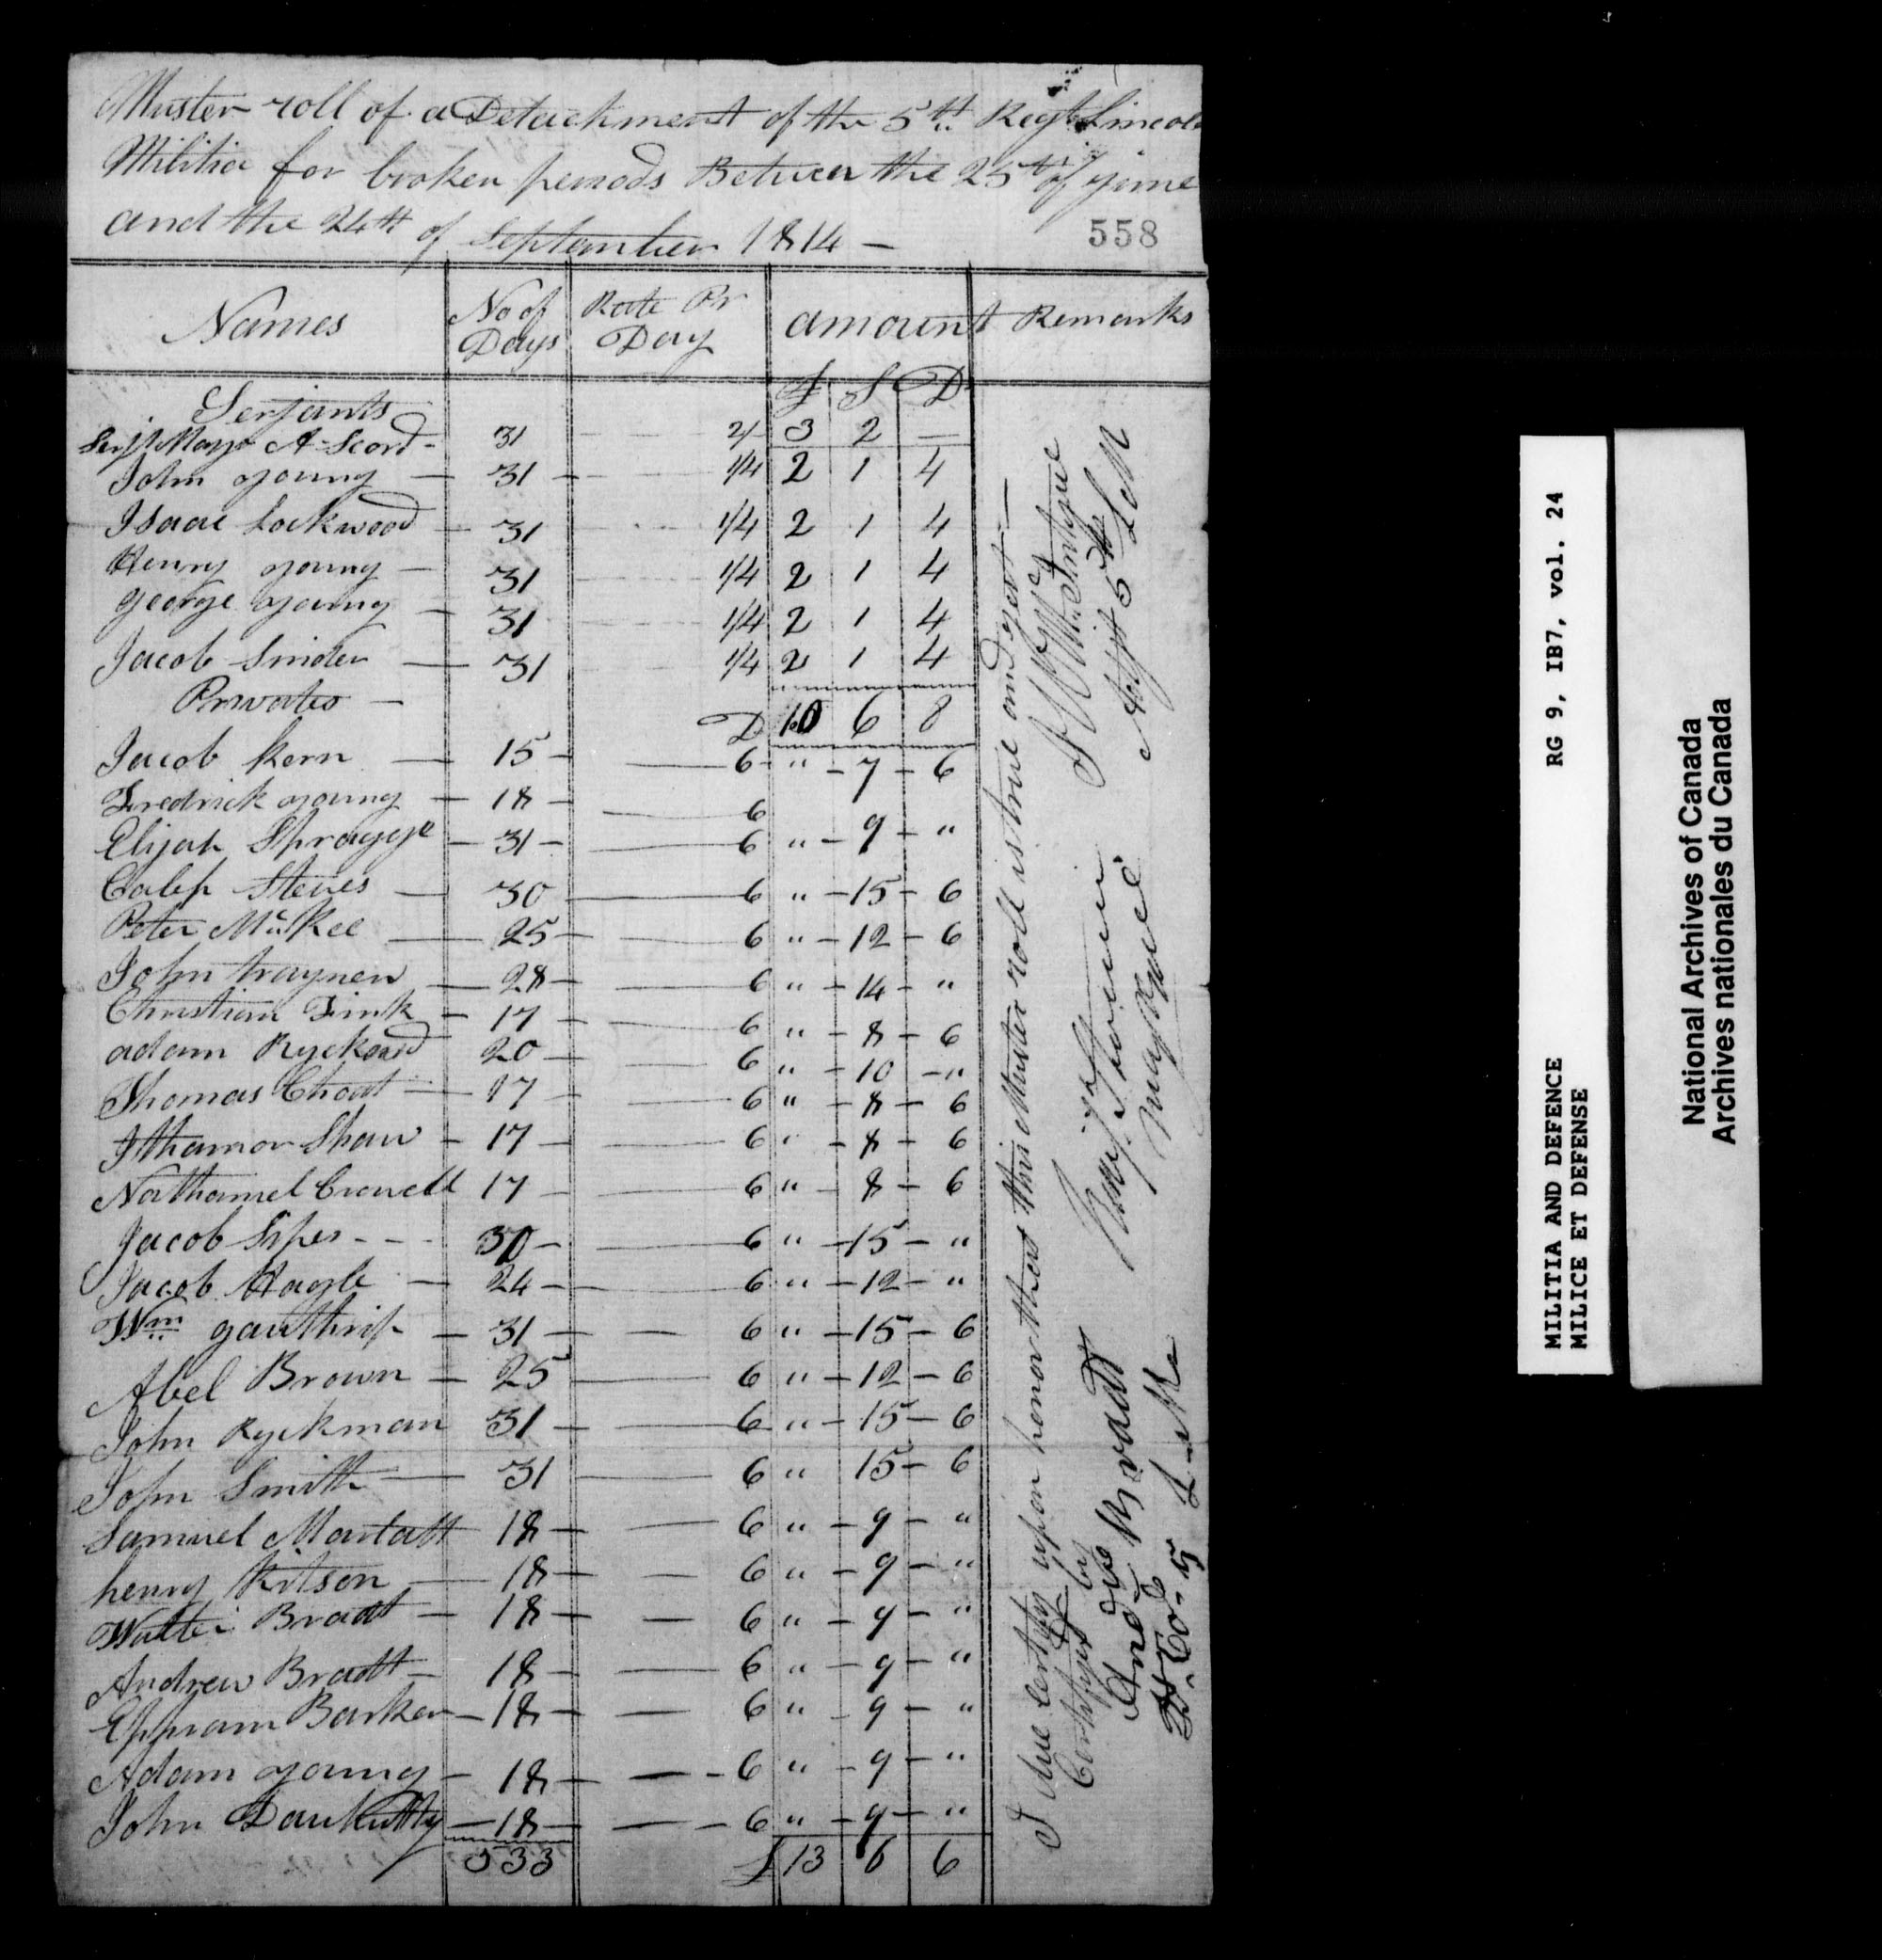 Muster roll of a Detachment of the 5th Regt Lincoln
Militia for broken periods Between the 25th of june
and the 24th of September 1814 —
558
Names No of Days Rate Pr Day amount Remarks
£ S D
Serjants
Serjt Major A Secord - 31 2/ 3 2 —
John young — 31 — 1/4 2 1 4
Isaac Lockwood — 31 1/4 2 1 4
Henry young — 31 1/4 2 1 4
george young — 31 1/4 2 1 4
Jacob Snider — 31 1/4 2 1 4
Privates — D 10 6 8
Jacob Kern — 15 — 6 - " - 7 - 6
Fredrick young — 18 — 6
Elijah Spragge — 31 — 6 " - 9 - "
Calep Steves — 30 — 6 " - 15 - 6
Peter McKee — 25 — 6 " - 12 - 6
John traynen — 28 — 6 " - 14 - "
Christian Fink — 17 — 6 " - 8 - 6
adam Ryckard 20 — 6 " - 10 - "
Thomas Choat — 17 — 6 " - 8 - 6
Ithamar Shaw — 17 — 6 " - 8 - 6
Nathaniel Crowell 17 — 6 " - 8 - 6
Jacob Sipes - - - 30 — 6 " - 15 - "
Jacob Hagle — 24 — 6 " - 12 - "
Wm gauthrip — 31 — 6 " - 15 - 6
Abel Brown — 25 — 6 " - 12 - 6
John Ryckman 31 — 6 " - 15 - 6
John Smith — 31 — 6 " 15 - 6
Samuel Marlatt 18 — 6 " - 9 - "
henry Kitson — 18 — 6 " - 9 - "
Walter Bradt — 18 — 6 " - 9 - "
Andrew Bradt — 18 — 6 " - 9 - "
Ephraim Barker — 18 — 6 " - 9 - "
Adam young — 18 — 6 " - 9 - "
John Daukutty — 18 — 6 " - 9 - "
533 £ 13 6 6
I due certify upon honor that this Muster roll is true and just —
Certifyed by
Andw Bradt
Lt Col 5 L M
Major
5th L M
MILITIA AND DEFENCE RG 9, IB7, vol. 24
MILICE ET DEFENSE
National Archives of Canada
Archives nationales du Canada